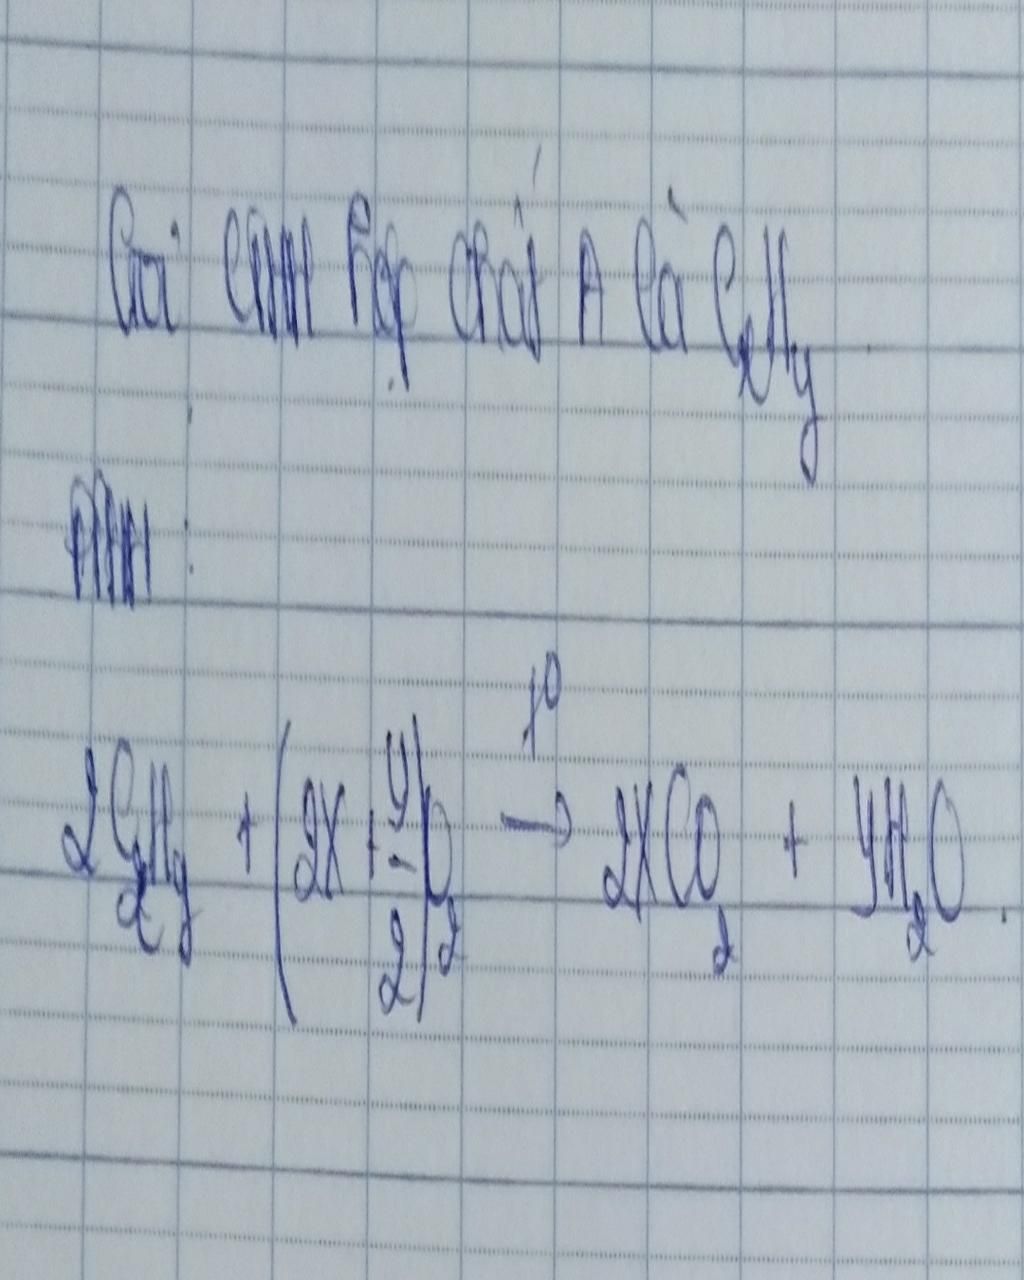 Gọi CTHH hợp chất A là CxHy
PTHH:
2CxHy + (2x + y/2)O2 -t°-> 2xCO2 + yH2O.